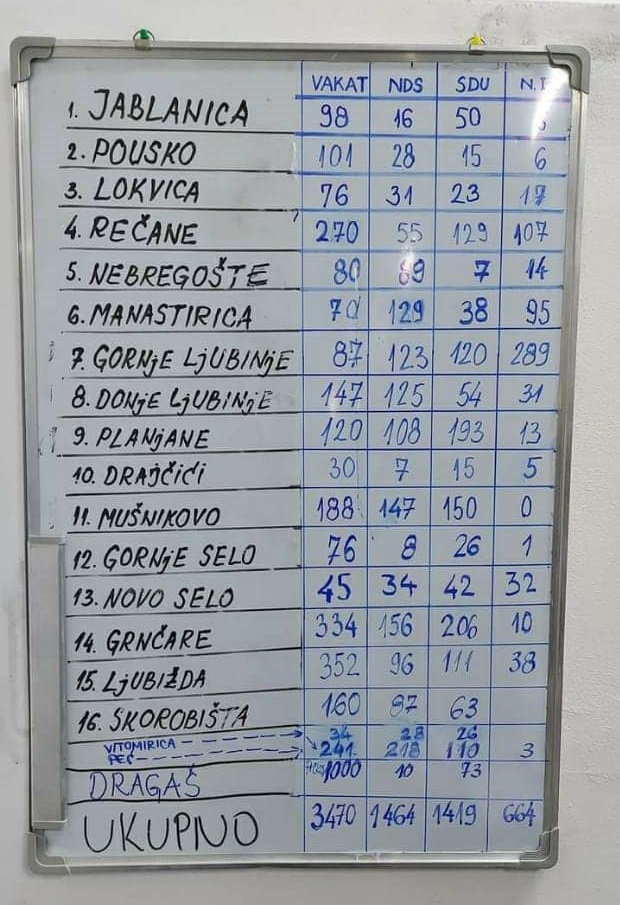 VAKAT NDS SDU N.
1. JABLANICA 98 16 50
2. POUSKO 101 28 15 6
3. LOKVICA 76 31 23 17
4. REČANE 270 55 129 107
5. NEBREGOŠTE 80 89 7 14
6. MANASTIRICA 70 129 38 95
7. GORNjE LjUBINjE 87 123 120 289
8. DONjE LjUBINjE 147 125 54 31
9. PLANjANE 120 108 193 13
10. DRAJČIĆI 30 7 15 5
11. MUŠNIKOVO 188 147 150 0
12. GORNjE SELO 76 8 26 1
13. NOVO SELO 45 34 42 32
14. GRNČARE 334 156 206 10
15. LjUBIŽDA 352 96 111 38
16. SKOROBIŠTA 160 87 63
VITOMIRICA 34 28 26
PEĆ 241 218 110 3
DRAGAŠ 1000 10 73
UKUPNO 3470 1464 1419 664